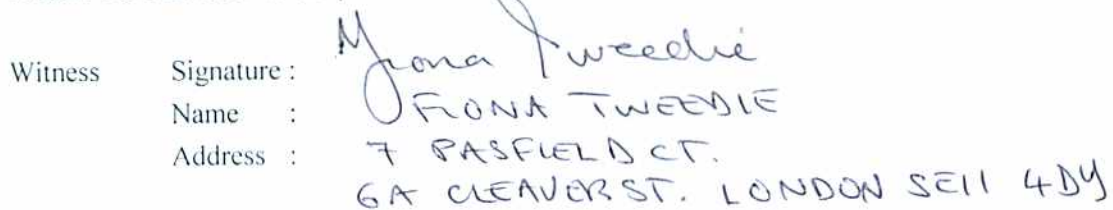 Witness Signature : Fiona Tweedie
Name : FIONA TWEEDIE
Address : 7 PASFIELD CT.
6A CLEAVER ST. LONDON SE11 4DY